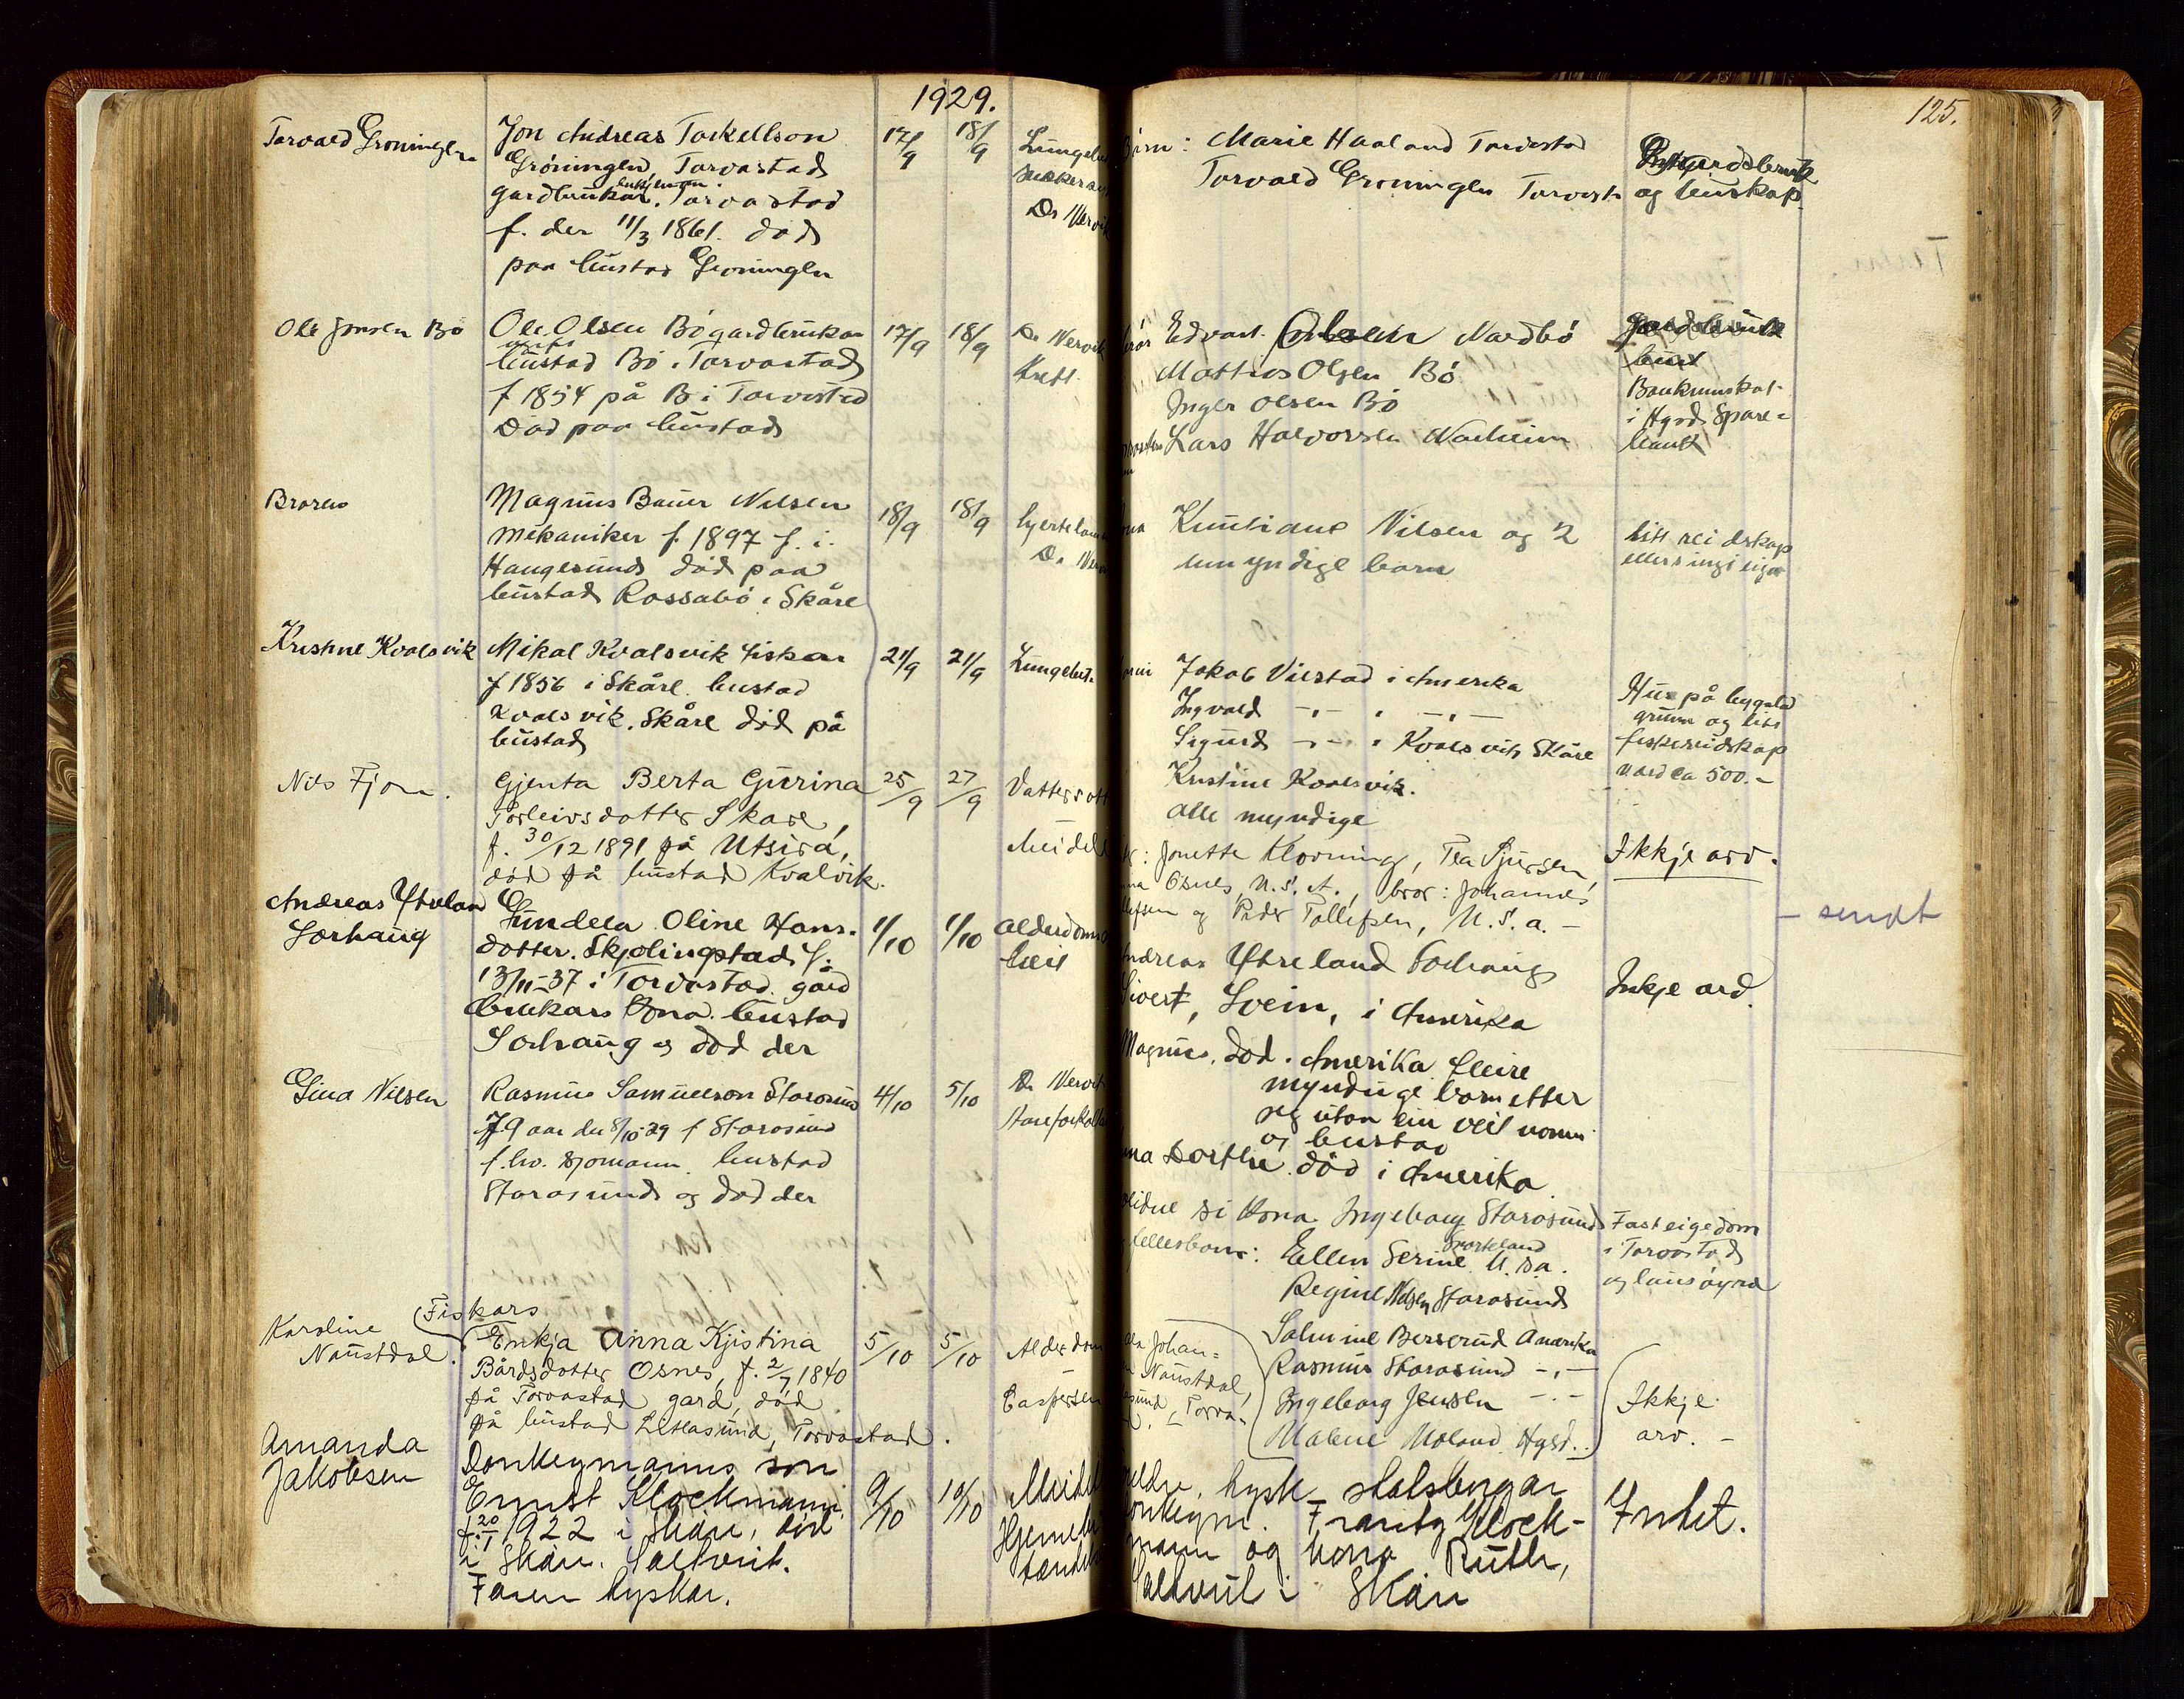 1929.
125.
Torvald Groningen
Jon Andreas Torkellson
Gröningen, Torvastad
enkjemann.
gardbrukar. Torvastad
f. den 11/3 1861. död
paa bustad Groningen
17/9
18/9
Lungebet
Dr Vervik
Börn : Marie Haaland Torvestad
Torvald Groningen Torvest
Gardsbruk
og buskap
Ole Jonsen Bö
Ole Olsen Bö gardbrukar
ugift
bustad Bö i Torvastad
f 1854 på B i Torvastad
Död paa bustad
17/9
18/9
Dr Vervik
Kreft
brör Edvart Olsen Nordbö
Mathias Olsen Bö
Inger Olsen Bö
Lars Halvorsen Norheim
Gardsbruk
bust
Bankinnskot
i Hgsd Spare-
bank
Broren
Magnus Bauer Nilsen
Mekaniker f. 1897 f. i.
Haugesund död paa
bustad Rossabö i Skåre
18/9
18/9
hjertelam
Dr Ver
kona Kunliane Nilsen og 2
umyndige barn
litt reidskap
ellers ingi eiga
Kristine Kvalsvik
Mikal Kvalsvik fiskar
f 1856 i Skåre. bustad
Kvalsvik. Skåre död på
bustad
21/9
21/9
Lungebet.
Jakob Vilstad i Amerika
Ingvald -,- , -,-
Sigurd -,- i Kvalsvik Skåre
Kristine Kvalsvik.
alle myndige
Hus på bygsla
grunn og litt
fiskereidskap
verd ca 500.-
Nils Fjon.
Gjenta Berta Gurina
Torleivsdotter Skare,
f. 30/12 1891 på Utsira,
död på bustad Kvalvik.
25/9
27/9
Vattersott
Meidell
: Jonette Klovning, Tea Sjursen,
Osnes, U.S.A., bror: Johannes
Tollefsen og Peder Tollefsen, U.S.a. -
Ikkje arv.
- sendt
Andreas Ytreland
Sorhaug
Gundela Oline Hans-
dotter. Skjolingstad f.
13/11-37 i Torvastad. gård
brukars kona. bustad
Sorhaug og död der
1/10
1/10
Alderdoms
Andreas Ytreland Sorhaug
Sivert, Svein, i Amerika
Magnus. död i Amerika fleire
myndige born etter
seg utan ein veit namn
og bustad
Dorthe. död i Amerika.
Inkje arv.
Gina Nilsen
Rasmus Samuelson Storosund
79 aar den 8/10-29 f Storosund
f.hv. sjomann. bustad
Storosund og död der
4/10
5/10
Dr Vervik
si kona Ingeborg Storosund
fellesborn: Ellen Serine U.S.a.
Regine Nilsen Storosund
Salmine Berserud Amerika
Rasmus Storosund -,-
Ingeborg Jensen -,-
Malene Moland Hgsd..
Fast eigedom
i Torvastad
og laus öyra
Karoline
Naustdal.
(Fiskars
Enkja Anna Kjistina
Bårdsdotter Osnes, f. 2/7 1840
på Torvastad gard, död
på bustad Litlasund, Torvastad.
5/10
5/10
Alderdom
Caspersen
Johan=
Naustdal,
sund, Torva-
Ikkje
arv. -
Amanda
Jakobsen
Donkeymanns son
Ernst Klockmann
f. 20/1 1922 i Skåre, död
i Skåre. Saltveit.
Faren tyskar.
9/10
10/10
Meidell
Hjernebe
foreldre, tysk statsborgar
donkeym. Frantz Klock-
mann og kona Ruth,
Saltveit i Skåre
Inkit.